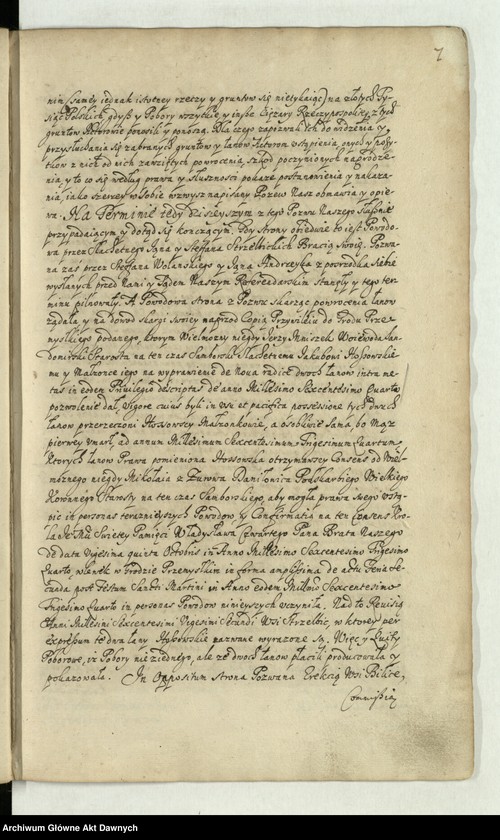 7
nin (samey iednak istotney rzeczy y gruntow się nietykaiąc) na złotych Ty-
siąc Polskich, gdyż y Pobory wszytkie y insze Ciężary Rzeczypospolitey z tych
gruntow Aktorowie ponosili y ponoszą. Dla czego zapozwał ich do widzenia y
przysłuchania się zabranych gruntow y łanow Aktorom ustąpienia, onych y pożyt-
kow z nich od nich zawziętych powrocenia, szkod poczynionych nagrodze-
nia, y to co się według prawa y słuszności pokaże postanowienia y nakaza-
nia, iako szerzey w sobie wzwysz napisany Pozew Nasz obmawia y opie-
wa. Na Terminie tedy dzisieyszym z tego Pozwu Naszego słusznie
przypadaiącym y dotąd się kończącym, Gdy strony obiedwie to iest Powodo-
wa przez Szlachetnego Jana y Stefana Strzelbickich Bracią swoię. Pozwa-
na zaś przez Stefana Wołańskiego y Jana Andrzeyka z posrzodka siebie
wysłanych przed Nami y Sądem Naszym Referendarskim stanęły y tego ter-
minu pilnowały. A Powodowa strona z Pozwu skarżąc powrocenia łanow
żądała, y na dowod skargi swoiey naprzod Copią Przywileiu do Grodu Prze-
myślskiego podanego, ktorym Wielmożny niegdy Jerzy Mniszek Woiewoda San-
domirski Starosta na ten czas Samborski Szlachetnemu Jakubowi Hoszowskie-
mu y Małżonce iego na wyprawienie de Nova radice dwoch łanow intra me-
tas in eodem Privilegio descriptas de anno Millesimo Sexcentesimo Quarto
pozwolenie dał, vigore cuius byli in usu et pacifica possessione tych dwuch
łanow przerzeczeni Hoszowscy Małżonkowie, a osobliwie sama, bo Mąż
pierwey umarł, ad annum Millesimum Sexcentesimum Trigesimum Quartum,
Ktorych łanow Prawa pomieniona Hoszowska otrzymawszy Consens od Wiel-
możnego niegdy Mikołaia z Żurowa Daniłowica Podskarbiego Wielkiego
Koronnego Starosty na ten czas Samborskiego, aby mogła prawa swego ustą-
pić in personas teraznieyszych Powodow y Confirmatią na ten Consens Kro-
la Je Mci Swietey Pamięci Władysława Czwartego Pana Brata Naszego
de data Vigesima quinta Octobris in Anno Millesimo Sexcentesimo Trigesimo
Quarto, wlewek w Grodzie Przemyskim in forma amplissima de actu Feria se-
cunda post Festum Sancti Martini in Anno eodem Millesimo Sexcentesimo
Trigesimo Quarto in personas Powodow ninieyszych uczyniła. Nad to Rewisią
Anni Millesimi Sexcentesimi Vigesimi Secundi Wsi Strzelbic, w ktorey per
expressum te dwa łany Hoszowskie nazwane wyrażone są. Więc y Kwity
Poborowe, iż Pobory nie z iednego, ale ze dwoch łanow płacili producowała y
pokazowała. In Oppositum strona Pozwana Erekcią Wsi Bilicz,
Commissią
Archiwum Główne Akt Dawnych